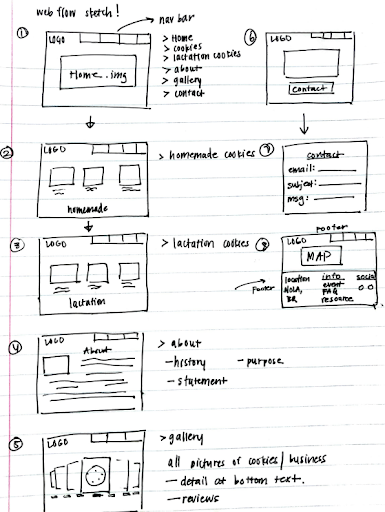 web flow sketch!
nav bar
①
LOGO
Home.img
> Home
> cookies
> lactation cookies
> about
> gallery
> contact
②
LOGO
homemade
> homemade cookies
③
LOGO
lactation
> lactation cookies
④
LOGO
About
> about
- history - purpose
- statement
⑤
LOGO
> gallery
all pictures of cookies / business
- detail at bottom text.
- reviews
⑥
LOGO
contact
⑦
contact
email:
subject:
msg:
⑧
Footer
LOGO
MAP
Footer
location info social
NOLA, event
BR FAQ
resource